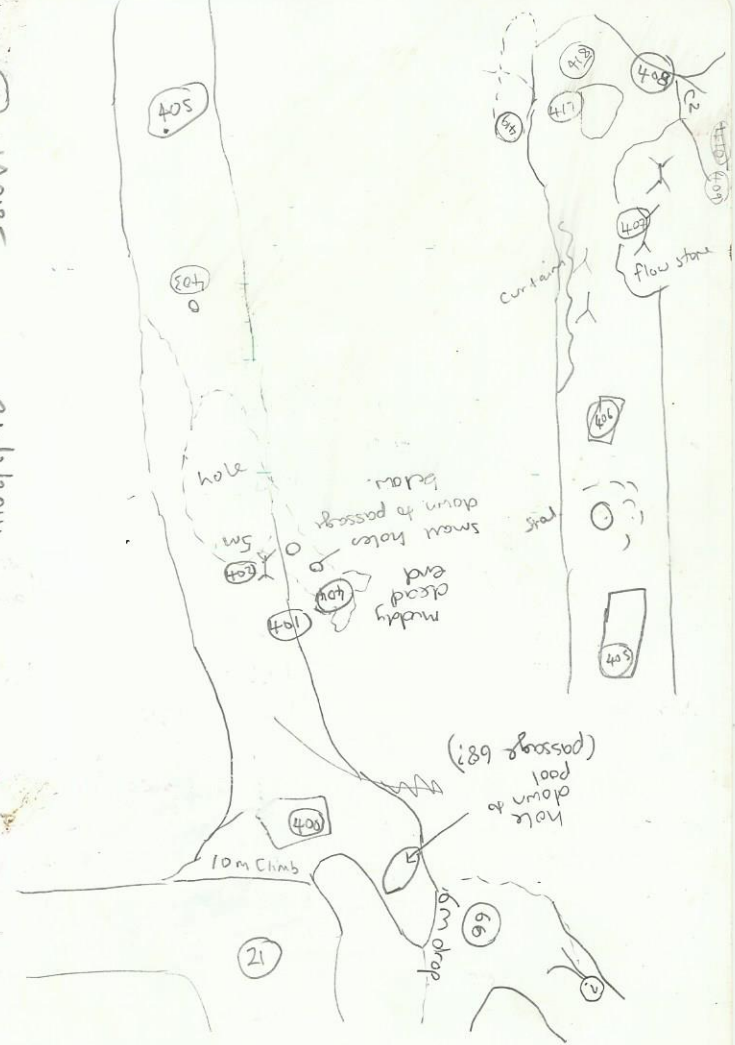 405
403
hole
5m
402
401
404
muddy
dead
end
small holes
down to passage
below.
400
10m Climb
21
hole
down to
pool
(passage 68?)
6m drop
66
?
418
417
419
408
C2
410
409
407
flow stone
curtain
406
stal
405